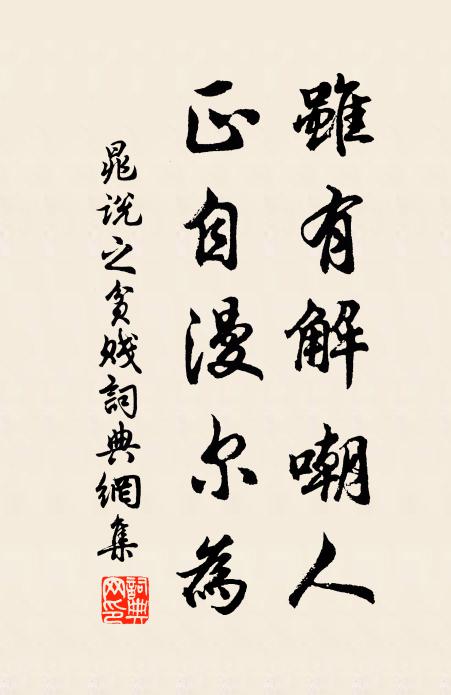 雖有解嘲人
正自漫尔為
晁說之貧賤詞典網集
詞典
网印